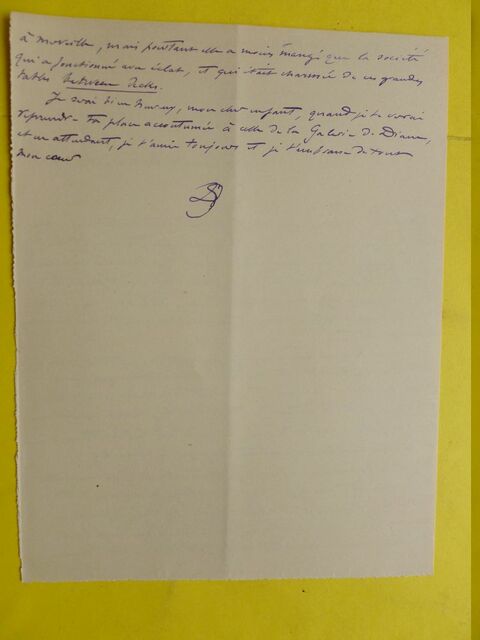 à merveille, mais pourtant elle a moins mangé que la société
qui a fonctionné avec éclat, et qui était charmée de ces grandes
tables between decks.
Je serai bien heureux, mon cher enfant, quand je te verrai
reprendre ta place accoutumée à celle de la Galerie de Diane,
et en attendant, je t'aime toujours et je t'embrasse de tout
mon cœur